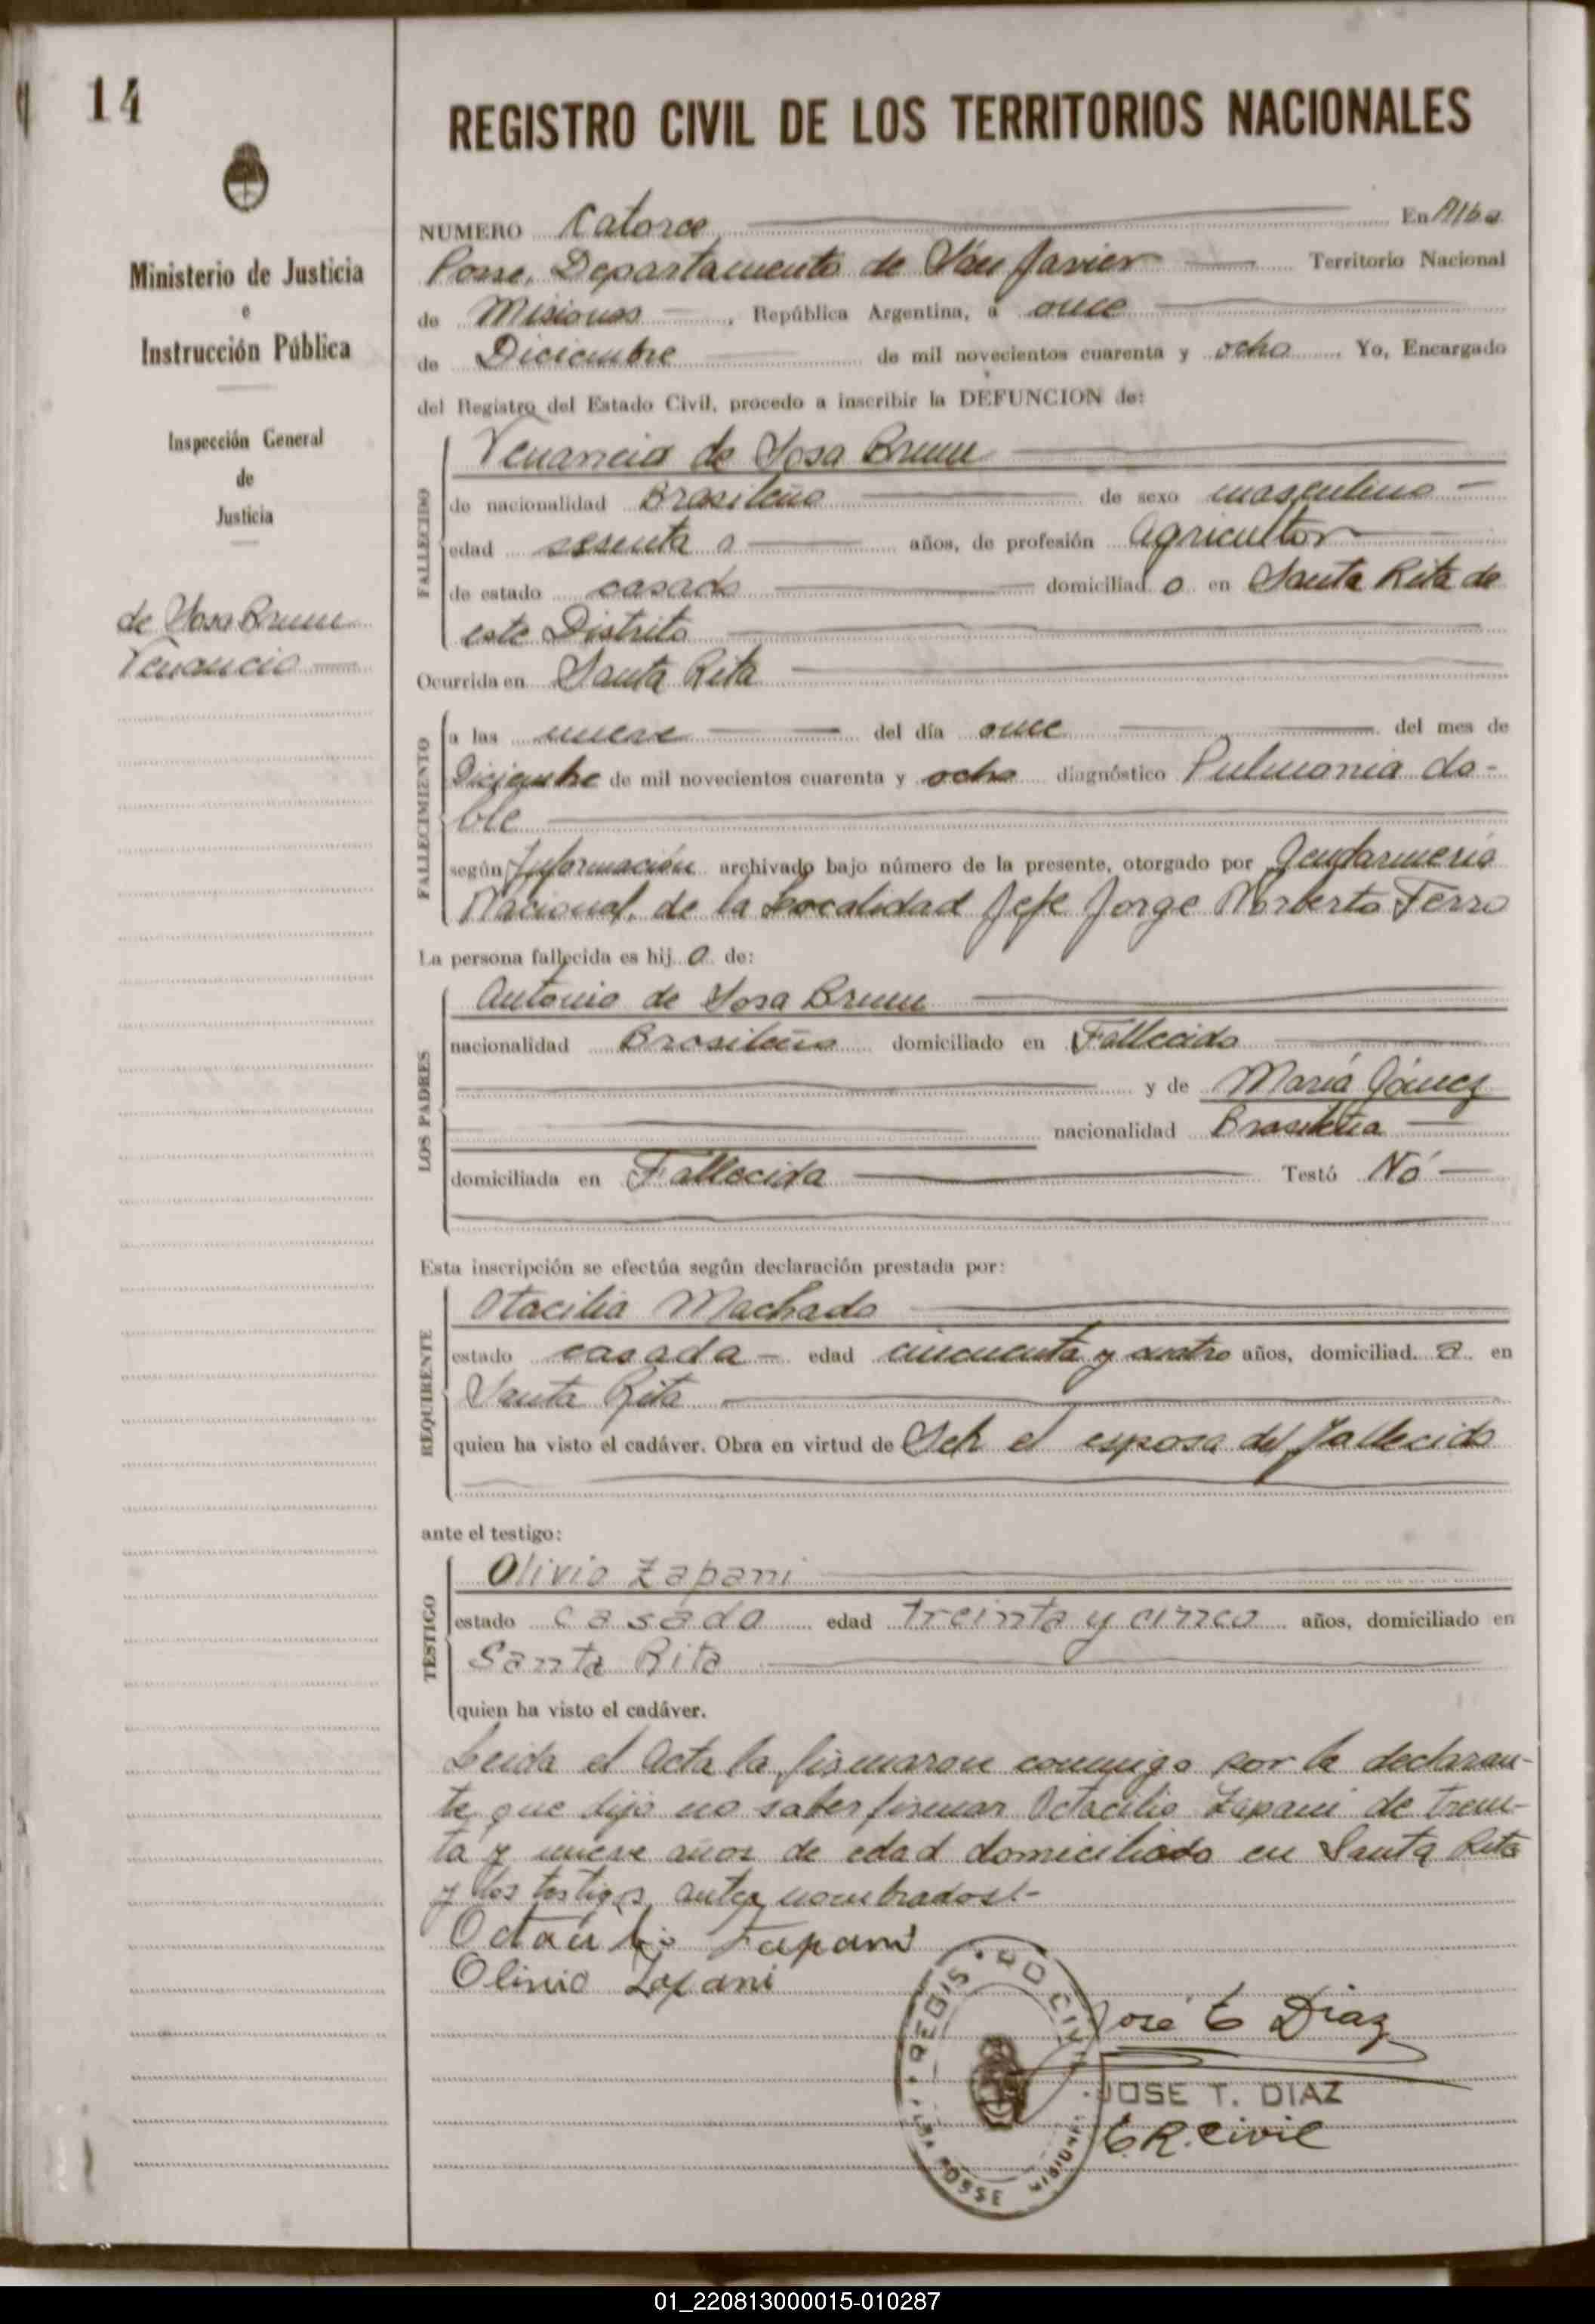 14
REGISTRO CIVIL DE LOS TERRITORIOS NACIONALES
Ministerio de Justicia
e
Instrucción Pública
Inspección General
de
Justicia
de Sosa Brum
Venancio
NUMERO Catorce En Alba
Posse, Departamento de San Javier Territorio Nacional
de Misiones, República Argentina, a once
de Diciembre de mil novecientos cuarenta y ocho. Yo, Encargado
del Registro del Estado Civil, procedo a inscribir la DEFUNCION de:
FALLECIDO
Venancio de Sosa Brum
de nacionalidad Brasileño de sexo masculino
edad sesenta años, de profesión agricultor
de estado casado domiciliad o en Santa Rita de
este Distrito
Ocurrida en Santa Rita
FALLECIMIENTO
a las nueve del día once del mes de
Diciembre de mil novecientos cuarenta y ocho diagnóstico Pulmonia do-
ble
según Información archivado bajo número de la presente, otorgado por Gendarmeria
Nacional, de la Localidad Jefe Jorge Norberto Ferro
La persona fallecida es hij o de:
LOS PADRES
Antonio de Sosa Brum
nacionalidad Brasileño domiciliado en Fallecido
y de María Gómez
nacionalidad Brasileña
domiciliada en Fallecida Testó Nó
Esta inscripción se efectúa según declaración prestada por:
REQUIRENTE
Otacilia Machado
estado casada - edad cincuenta y cuatro años, domiciliad a en
Santa Rita
quien ha visto el cadáver. Obra en virtud de Ser el esposa del fallecido
ante el testigo:
TESTIGO
Olivio Zapani
estado casado edad treinta y cinco años, domiciliado en
Santa Rita
quien ha visto el cadáver.
Leida el acta la firmaron conmigo por la declaran-
te que dijo no saber firmar Octacilio Zapani de trein-
ta y nueve años de edad domiciliado en Santa Rita
y los testigos antes nombrados.-
Octacilio Zapani
Olivio Zapani
REGISTRO CIVIL
POSSE
José T Diaz
JOSE T. DIAZ
E. R. Civil
01_220813000015-010287